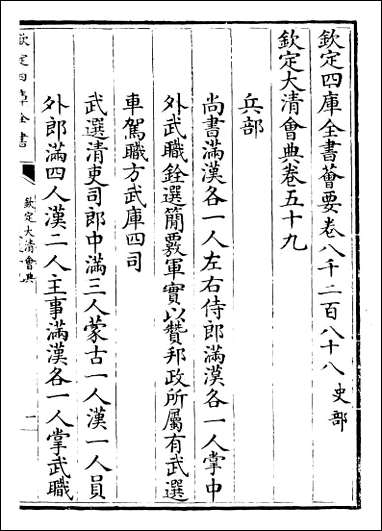 欽定四庫全書薈要卷八千二百八十八 史部
欽定大清會典卷五十九
兵部
尚書滿漢各一人左右侍郎滿漢各一人掌中
外武職銓選簡覈軍實以贊邦政所屬有武選
車駕職方武庫四司
武選清吏司郎中滿三人蒙古一人漢一人員
外郎滿四人漢二人主事滿漢各一人掌武職
欽定四庫全書
欽定大清會典
一